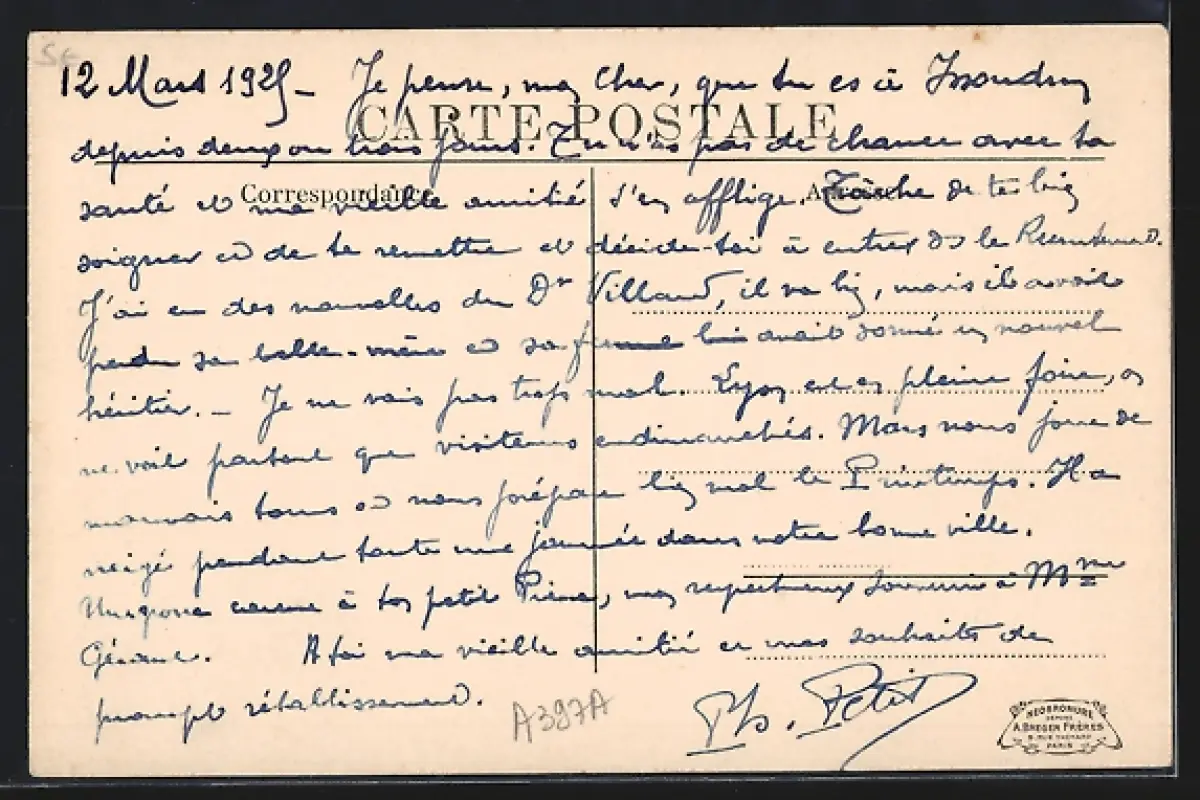 12 Mars 1925 – Je pense, mon cher, que tu es à Issoudun
CARTE POSTALE
depuis deux ou trois jours. Tu n'as pas de chance avec ta
Correspondance
Adresse
santé et ma vieille amitié s'en afflige. Tâche de te bien
soigner et de te remettre et décide-toi à entrer ds le
J'ai eu des nouvelles du Dr Villard, il va bien, mais il avait
perdu sa belle-mère et sa femme lui avait donné un nouvel
héritier. – Je ne vais pas trop mal. Lyon est en pleine foire, on
ne voit partout que visiteurs endimanchés. Mars nous joue de
mauvais tours et nous prépare bien mal le Printemps. Il a
neigé pendant toute une journée dans notre bonne ville.
Une grosse caresse à ton petit Pierre, mes respectueux souvenirs à Mme
A toi ma vieille amitié et mes souhaits de
prompt rétablissement.
Ph. Petit
A397A
NÉOBROMURE
DÉPOSÉ
A. BREGER FRÈRES
9, RUE THÉNARD
PARIS